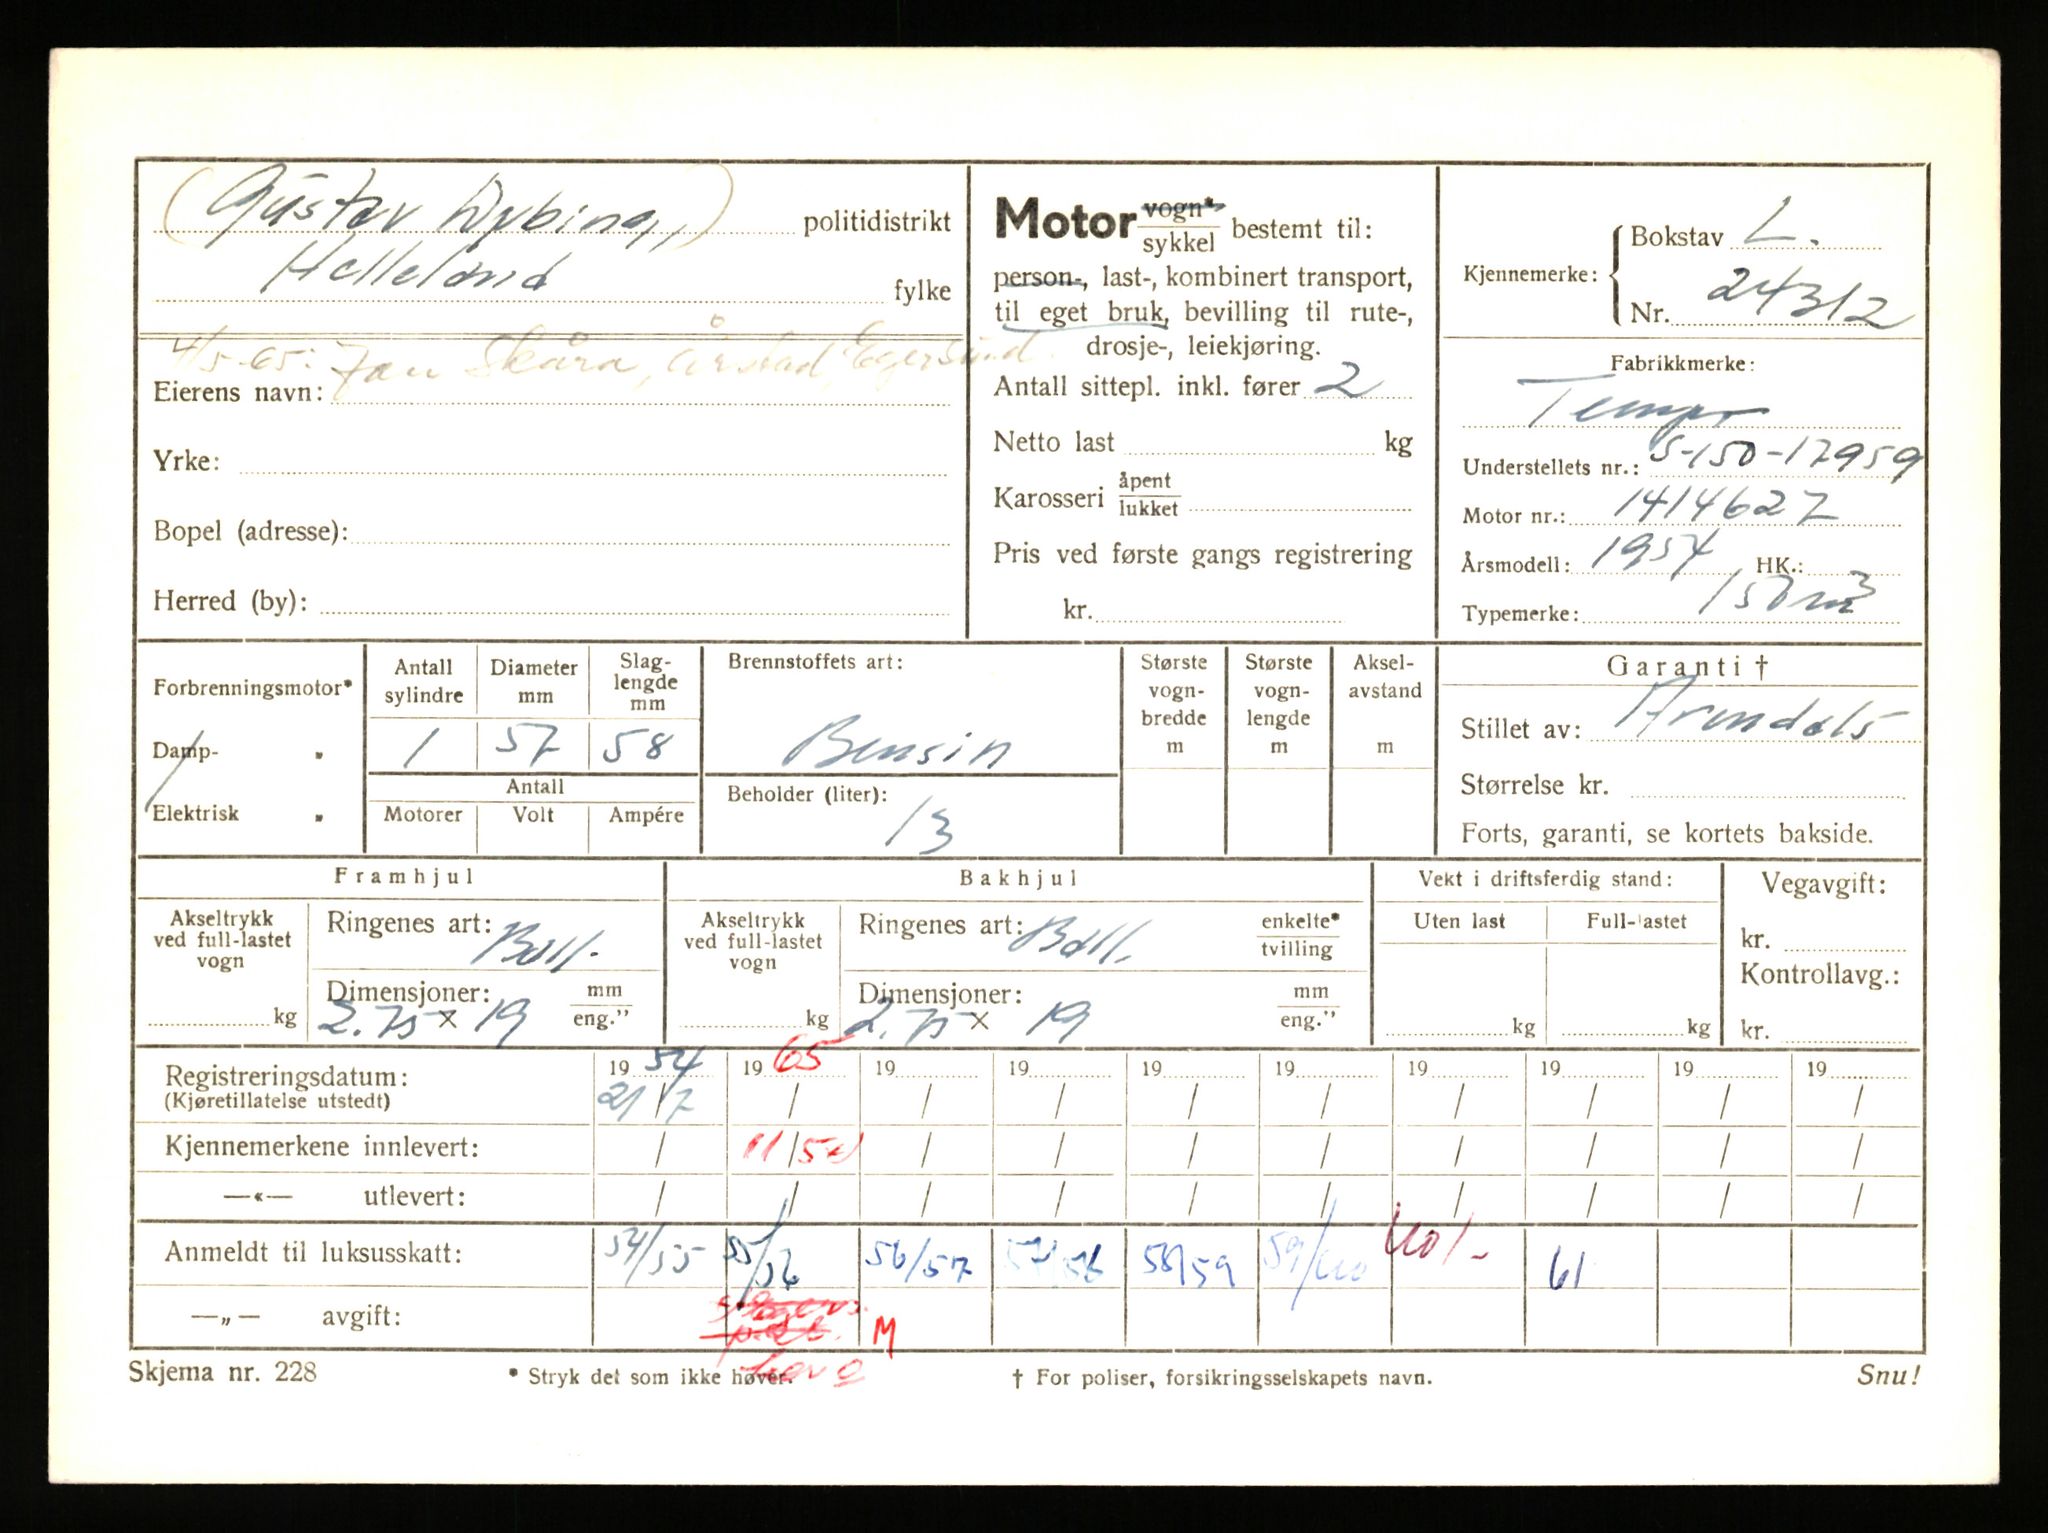 (Gustav Dybing,) politidistrikt
Helleland fylke
4/5-65: Jan Skåra, Årstad, Egersund.
Eierens navn:
Yrke:
Bopel (adresse):
Herred (by):
Motor vogn* / sykkel bestemt til:
person-, last-, kombinert transport,
til eget bruk, bevilling til rute-,
drosje-, leiekjøring.
Antall sittepl. inkl. fører 2
Netto last kg
Karosseri åpent / lukket
Pris ved første gangs registrering
kr.
Kjennemerke: Bokstav L.
Nr. 24312
Fabrikkmerke:
Tempo
Understellets nr.: S-150-17959
Motor nr.: 1414627
Årsmodell: 1954 HK.:
Typemerke: 150 m3
Forbrenningsmotor*
Damp- "
Elektrisk "
Antall sylindre Diameter mm Slag-lengde mm
1 57 58
Antall
Motorer Volt Ampére
Brennstoffets art:
Bensin
Beholder (liter):
13
Største vogn-bredde m
Største vogn-lengde m
Aksel-avstand m
Garanti †
Stillet av: Arendals
Størrelse kr.
Forts, garanti, se kortets bakside.
Framhjul
Akseltrykk ved full-lastet vogn
kg
Ringenes art: Ball.
Dimensjoner: mm / eng."
2.75 x 19
Bakhjul
Akseltrykk ved full-lastet vogn
kg
Ringenes art: Ball. enkelte* / tvilling
Dimensjoner: mm / eng."
2.75 x 19
Vekt i driftsferdig stand:
Uten last Full-lastet
kg kg
Vegavgift:
kr.
Kontrollavg.:
kr.
Registreringsdatum: 1954 1965 19 19 19 19 19 19 19 19
(Kjøretillatelse utstedt) 21/7 / / / / / / / / /
Kjennemerkene innlevert: / 11/5 / / / / / / / /
—«— utlevert: / / / / / / / / / /
Anmeldt til luksusskatt: 54/55 55/56 56/57 57/58 58/59 59/60 60/- 61
—„— avgift: M
Skjema nr. 228 * Stryk det som ikke høver. † For poliser, forsikringsselskapets navn. Snu!